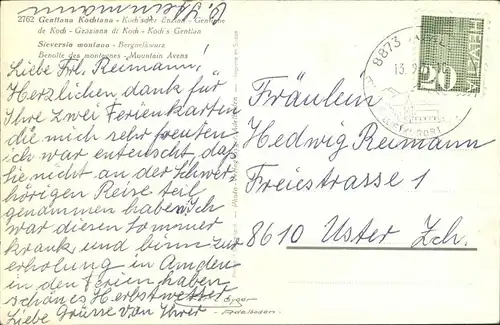 2762 Gentiana Kochiana - Koch'scher Enzian - Gentiane
de Koch - Genziana di Koch - Koch's Gentian
Sieversia montana - Bergnelkwurz
Benoîte des montagnes - Mountain Avens
Liebe Frl. Reimann!
Herzlichen dank für
Ihre zwei Ferienkarten
die mich sehr freuten
ich war enteuscht, das
sie nicht an der Schwer
hörigen Reise teil
genammen haben. Ich
war diesen Sommer
krank und binn zur
erholung in Amden
in den Ferien haben
schönes Herbstwetter
Liebe Grüsse von Ihrer
Gyger
Adelboden
8873
13.
20
HELVETIA
Fräulein
Hedwig Reimann
Freiestrasse 1
8610 Uster Zch.